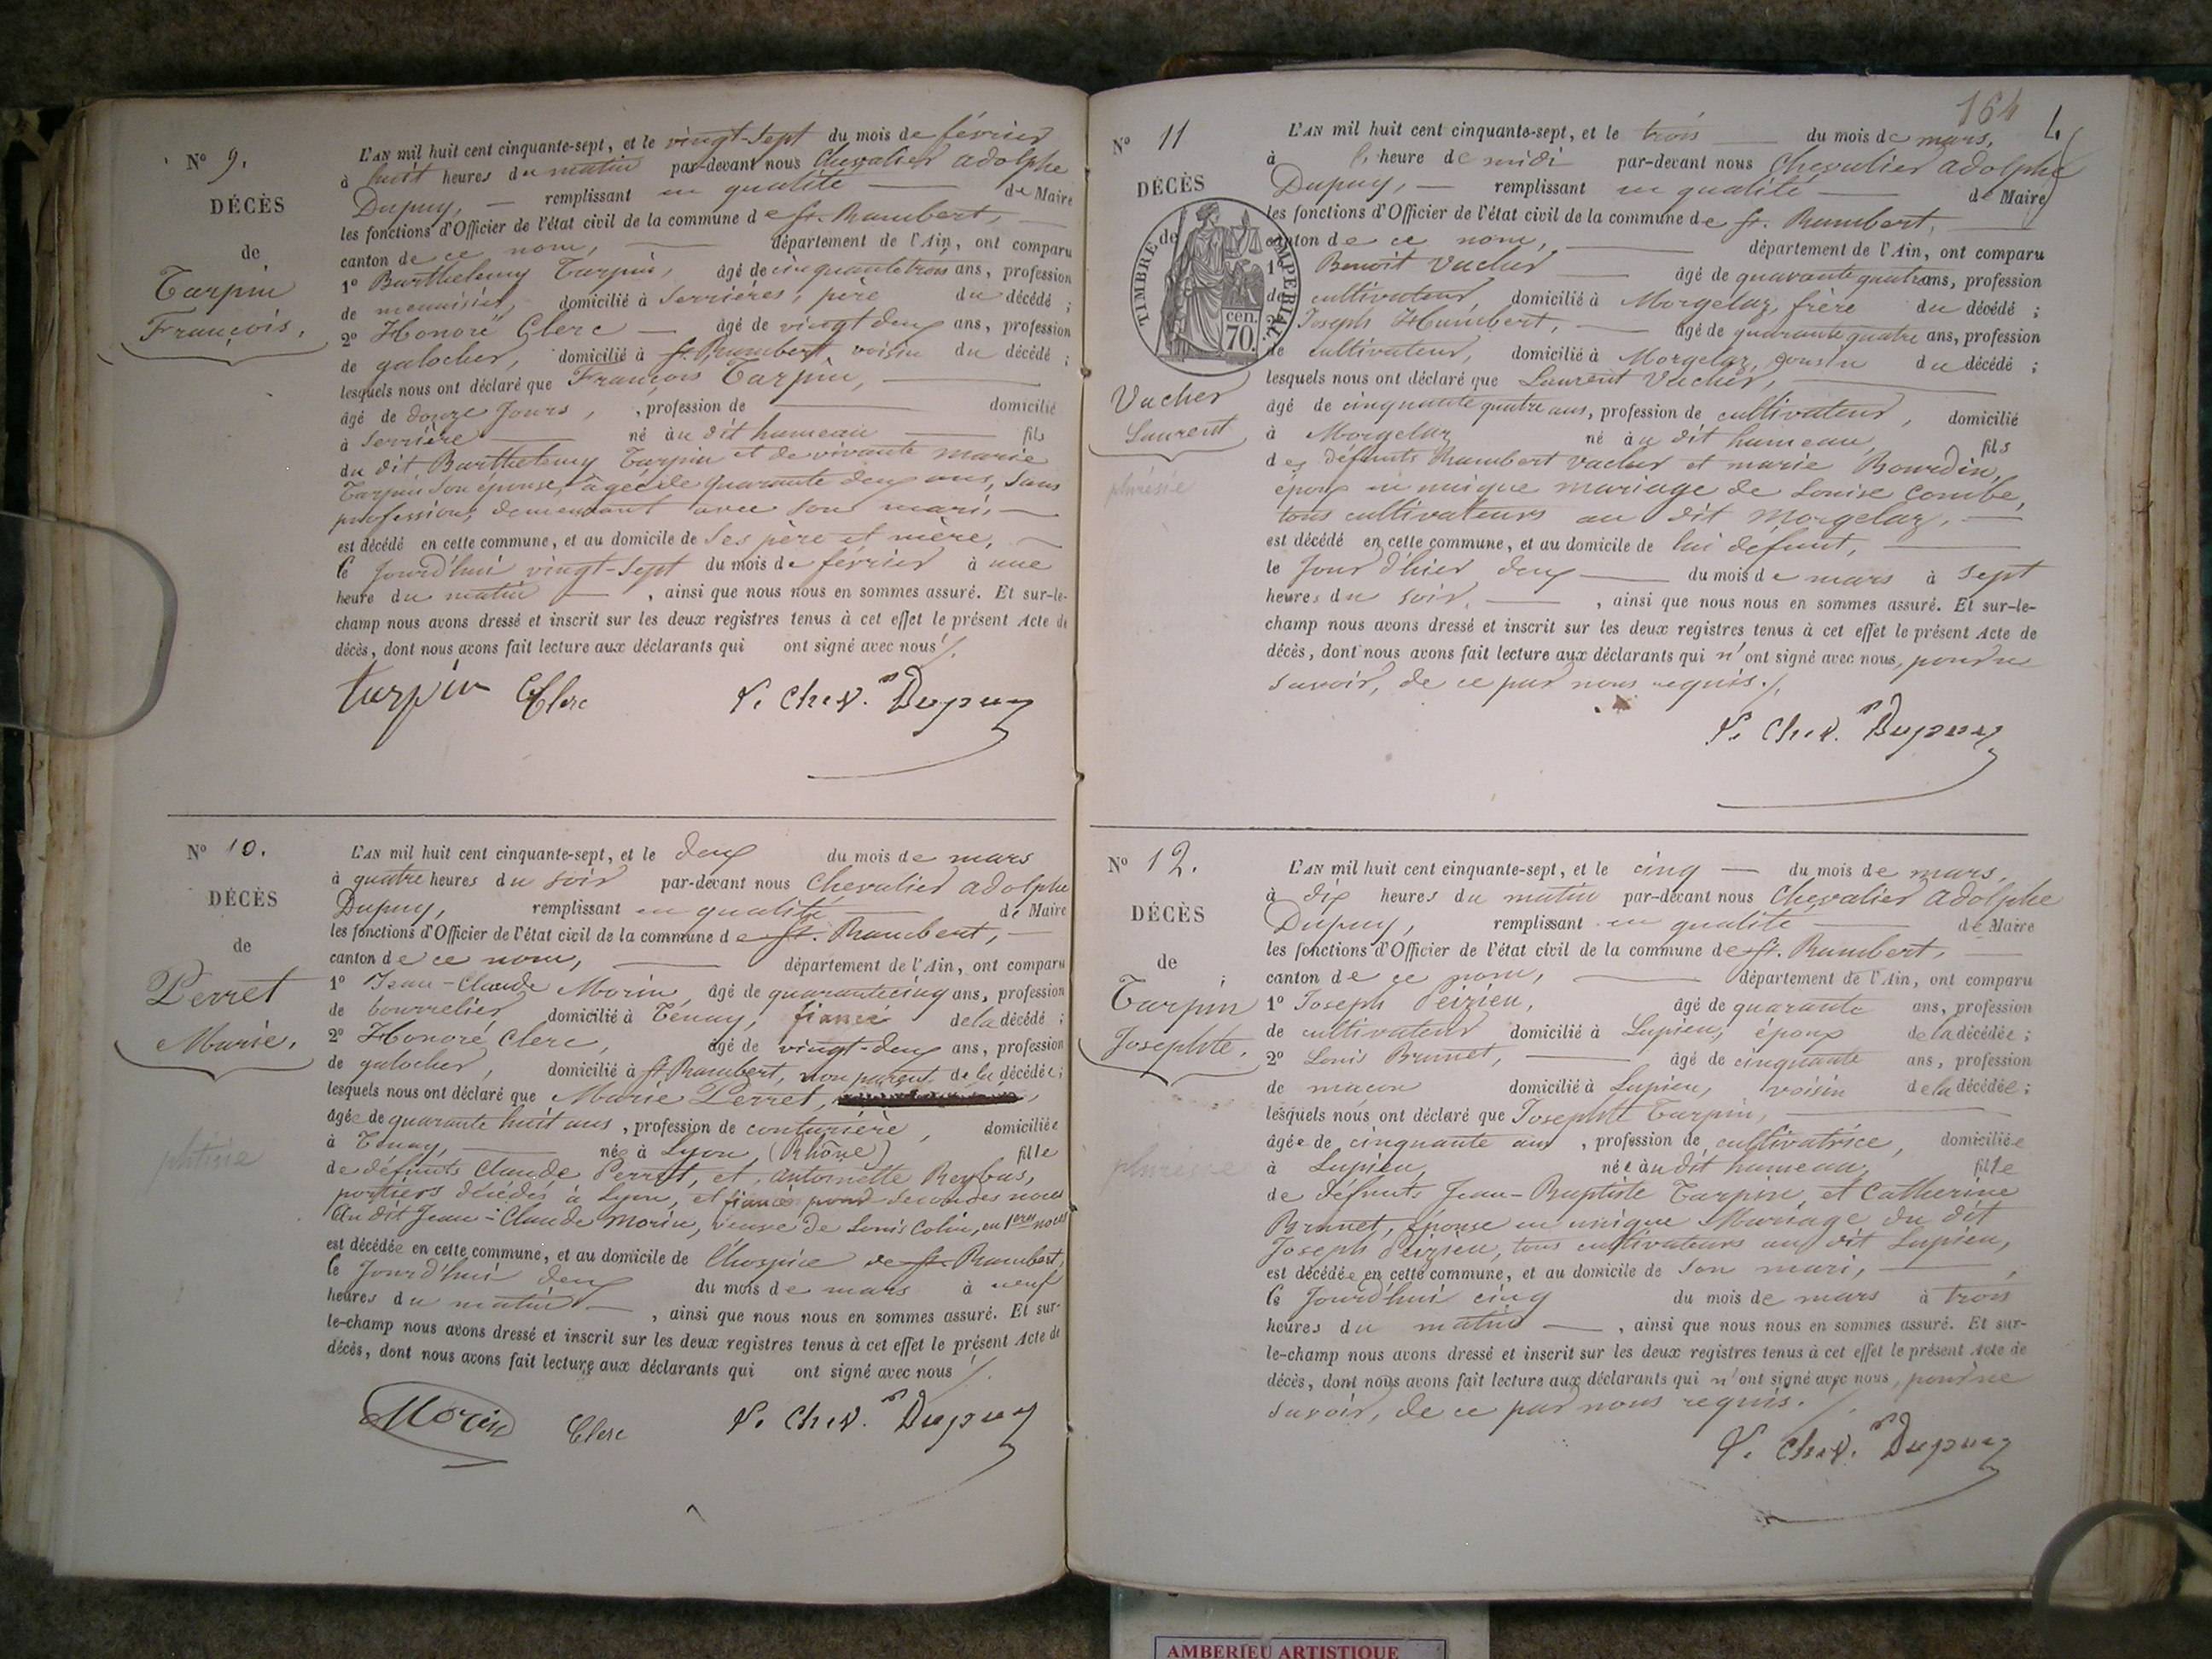 N° 9.
DÉCÈS
de
Tarpin
François.
L'AN mil huit cent cinquante-sept, et le vingt-sept du mois de février
à huit heures du matin par-devant nous Chevalier adolphe
Dupuy, remplissant en qualité de Maire
les fonctions d'Officier de l'état civil de la commune de St. Rambert,
canton de ce nom, département de l'Ain, ont comparu
1° Barthelemy Tarpin, âgé de cinquante trois ans, profession
de menuisier, domicilié à Serrières, père du décédé ;
2° Honoré Clerc âgé de vingt deux ans, profession
de galocher, domicilié à St. Rambert, voisin du décédé ;
lesquels nous ont déclaré que François Tarpin,
âgé de douze jours, , profession de domicilié
à Serrière né au dit hameau fils
du dit Barthelemy Tarpin et de vivante marie
Tarpin son épouse, agée de quarante deux ans, sans
profession, demeurant avec son mari,
est décédé en cette commune, et au domicile de ses père et mère,
le jourd'hui vingt-sept du mois de février à une
heure du matin , ainsi que nous nous en sommes assuré. Et sur-le-
champ nous avons dressé et inscrit sur les deux registres tenus à cet effet le présent Acte de
décès, dont nous avons fait lecture aux déclarants qui ont signé avec nous ./.
tarpin Clerc Chev. Dupuy
N° 10.
DÉCÈS
de
Perret
Marie.
phtisie
L'AN mil huit cent cinquante-sept, et le deux du mois de mars
à quatre heures du soir par-devant nous Chevalier adolphe
Dupuy, remplissant en qualité de Maire
les fonctions d'Officier de l'état civil de la commune de St. Rambert,
canton de ce nom, département de l'Ain, ont comparu
1° Jean-Claude Morin, âgé de quarante cinq ans, profession
de bourrelier domicilié à Tenay, fiancé de la décédé ;
2° Honoré Clerc, âgé de vingt-deux ans, profession
de galocher, domicilié à St Rambert, non parent de la décédée ;
lesquels nous ont déclaré que Marie Perret,
âgée de quarante huit ans, profession de couturière, domiciliée
à Tenay, née à Lyon, (Rhône) fille
de défunts Claude Perret, et antoinette Reybas,
portiers décédés à Lyon, et fiancée pour secondes noces
Au dit Jean-Claude Morin, veuve de Louis Colin, en 1eres noces
est décédée en cette commune, et au domicile de l'hospice de St. Rambert,
le jourd'hui deux du mois de mars à neuf
heures du matin , ainsi que nous nous en sommes assuré. Et sur-
le-champ nous avons dressé et inscrit sur les deux registres tenus à cet effet le présent Acte de
décès, dont nous avons fait lecture aux déclarants qui ont signé avec nous ./.
Morin Clerc Chev. Dupuy
164
N° 11
DÉCÈS
de
TIMBRE IMPERIAL.
70. cen.
Vacher
Laurent
plurésie
L'AN mil huit cent cinquante-sept, et le trois du mois de mars,
à heure de midi par-devant nous Chevalier adolphe
Dupuy, remplissant en qualité de Maire
les fonctions d'Officier de l'état civil de la commune de St. Rambert,
canton de ce nom, département de l'Ain, ont comparu
1° Benoit Vacher âgé de quarante quatre ans, profession
de cultivateur, domicilié à Morgelaz, frère du décédé ;
2° Joseph Humbert, âgé de quarante quatre ans, profession
de cultivateur, domicilié à Morgelaz, cousin du décédé ;
lesquels nous ont déclaré que Laurent Vacher,
âgé de cinquante quatre ans, profession de cultivateur, domicilié
à Morgelaz né au dit hameau, fils
des défunts Rambert Vacher et marie Bourdin,
époux en unique mariage de Louise Combe,
tous cultivateurs au dit Morgelaz,
est décédé en cette commune, et au domicile de lui défunt,
le jour d'hier deux du mois de mars à sept
heures du soir, , ainsi que nous nous en sommes assuré. Et sur-le-
champ nous avons dressé et inscrit sur les deux registres tenus à cet effet le présent Acte de
décès, dont nous avons fait lecture aux déclarants qui n'ont signé avec nous, pour ne
savoir, de ce par nous requis ./.
Chev. Dupuy
N° 12.
DÉCÈS
de
Tarpin
Josephte.
plurésie
L'AN mil huit cent cinquante-sept, et le cinq du mois de mars,
à dix heures du matin par-devant nous Chevalier adolphe
Dupuy, remplissant en qualité de Maire
les fonctions d'Officier de l'état civil de la commune de St. Rambert,
canton de ce nom, département de l'Ain, ont comparu
1° Joseph Peizieu, âgé de quarante ans, profession
de cultivateur domicilié à Lupieu, époux de la décédée ;
2° Louis Brunet, âgé de cinquante ans, profession
de maçon domicilié à Lupieu, voisin de la décédée ;
lesquels nous ont déclaré que Josephte Tarpin,
âgée de cinquante ans , profession de cultivatrice, domiciliée
à Lupieu, née au dit hameau, fille
de défunts Jean-Baptiste Tarpin, et Catherine
Brunet, épouse en unique Mariage du dit
Joseph Peizieu, tous cultivateurs au dit Lupieu,
est décédée en cette commune, et au domicile de son mari,
le jourd'hui cinq du mois de mars à trois
heures du matin , ainsi que nous nous en sommes assuré. Et sur-
le-champ nous avons dressé et inscrit sur les deux registres tenus à cet effet le présent Acte de
décès, dont nous avons fait lecture aux déclarants qui n'ont signé avec nous, pour ne
savoir, de ce par nous requis ./.
Chev. Dupuy
AMBERIEU ARTISTIQUE